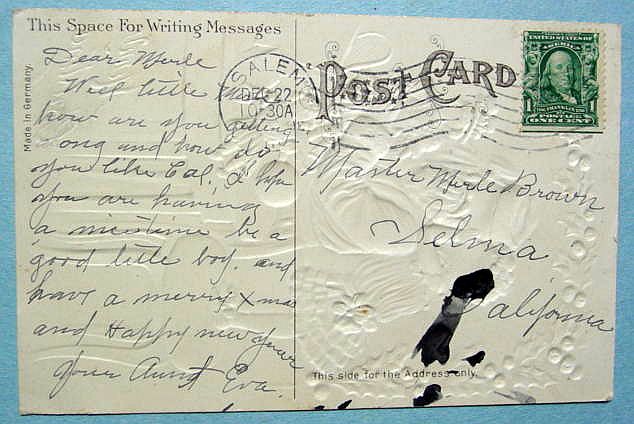 This Space For Writing Messages
Made in Germany.
Dear Merle
Well little man
how are you getting
ong and how do
you like Cal. I hope
you are having
a nice time be a
good little boy. and
have a merry Xmas
and Happy new year
your Aunt Eva.
SALEM
DEC 22
10-30A
POST CARD
UNITED STATES OF
AMERICA
FRANKLIN
1 1
POSTAGE
ONE CENT
Master Merle Brown
Selma
California
This side for the Address only.